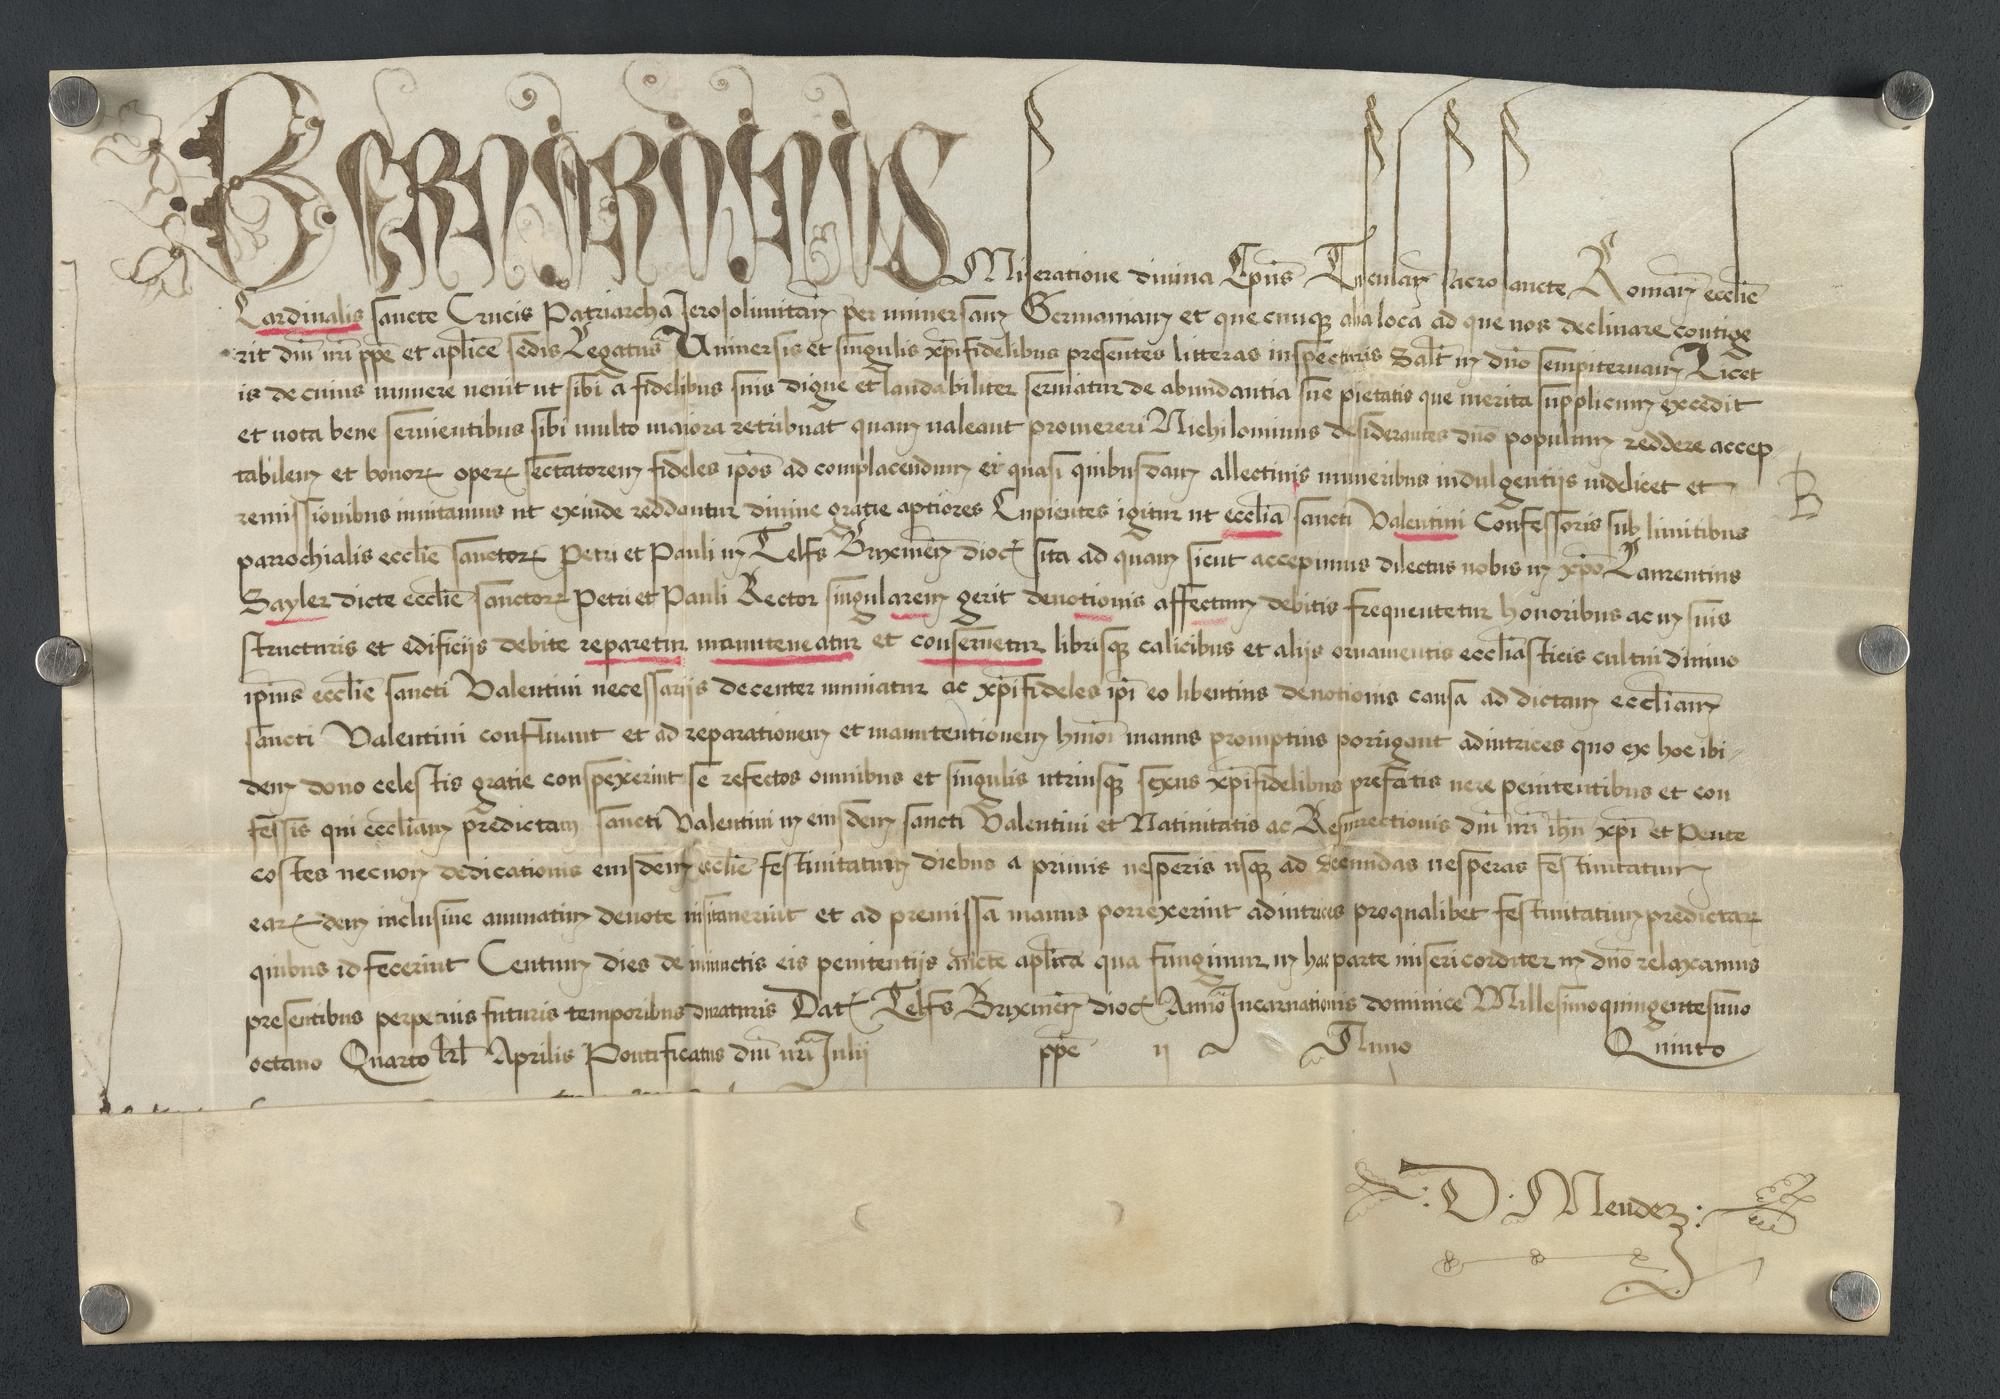 Bernardinus Miseratione divina Ep̄us Tusculan̄ sacrosancte Roman̄ ecclīe
Cardinalis sancte Crucis Patriarcha Jerosolimitan̄ per universam Germaniam et quecunqꝫ alia loca ad que nos declinare contige
rit dn̄i nr̄i pp̄e et aplice sedis Legatus Universis et singulis xp̄ifidelibus presentes litteras inspecturis Salt̄m in dn̄o sempiternam Licet
is de cuius munere venit ut sibi a fidelibus suis digne et laudabiliter serviatur de abundantia sue pietatis que merita supplicum excedit
et vota bene servientibus sibi multo maiora retribuat quam valeant promereri Nichilominus desiderantes dn̄o populum reddere accep
tabilem et bonoꝝ operꝫ sectatorem fideles ip̄os ad complacendum ei quasi quibusdam allectivis muneribus indulgentijs videlicet et
remissionibus invitamus ut exinde reddantur divine gratie aptiores Cupientes igitur ut eccliā sancti Valentini Confessoris sub limitibus
parrochialis ecclīe sanctorꝫ Petri et Pauli in Telfs Brixinen̄ dioc̄ sita ad quam sicut accepimus dilectus nobis in xp̄o Laurentius
Sayler dicte ecclīe sanctorꝫ Petri et Pauli Rector singularem gerit devotionis affectum debitis frequentetur honoribus ac in suis
structuris et edificijs debite reparetur manuteneatur et conservetur librisqꝫ calicibus et alijs ornamentis ecclīasticis cultui divino
ip̄ius ecclīe sancti Valentini necessarijs decenter muniatur ac xp̄ifideles ip̄i eo libentius devotionis causa ad dictam ecclīam
sancti Valentini confluant et ad reparationem et manutentionem hmōi manus promptius porrigant adiutrices quo ex hoc ibi
dem dono celestis gratie conspexerint se refectos omnibus et singulis utriusqꝫ sexus xp̄ifidelibus prefatis vere penitentibus et con
fessis qui ecclīam predictam sancti Valentini in eiusdem sancti Valentini et Nativitatis ac Resurrectionis dn̄i nr̄i ih̄u xp̄i et Pente
costes necnon dedicationis eiusdem ecclīe festivitatum diebus a primis vesperis usqꝫ ad secundas vesperas festivitatum
earꝫdem inclusive annuatim devote visitaverint et ad premissa manus porrexerint adiutrices pro qualibet festivitatum predictarꝫ
quibus id fecerint Centum dies de iniunctis eis penitentijs aucte aplica qua fungimur in hac parte misericorditer in dn̄o relaxamus
presentibus perpetuis futuris temporibus duraturis Dat̄ Telfs Brixinen̄ dioc̄ Anno Incarnationis dominice Millesimoquingentesimo
octavo Quarto kl̄ Aprilis Pontificatus dn̄i nr̄i Julii pp̄e ii Anno Quinto
B
: D : Mendez :